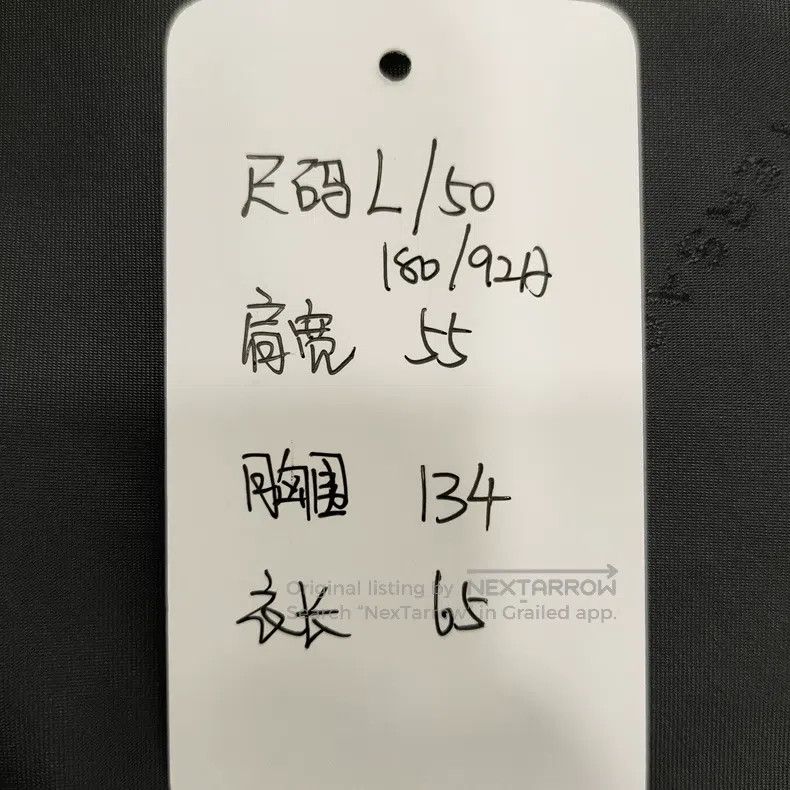 尺码 L/50
180/92A
肩宽 55
胸围 134
衣长 65
Original listing by NEXTARROW
Search "NexTarrow" in Grailed app.